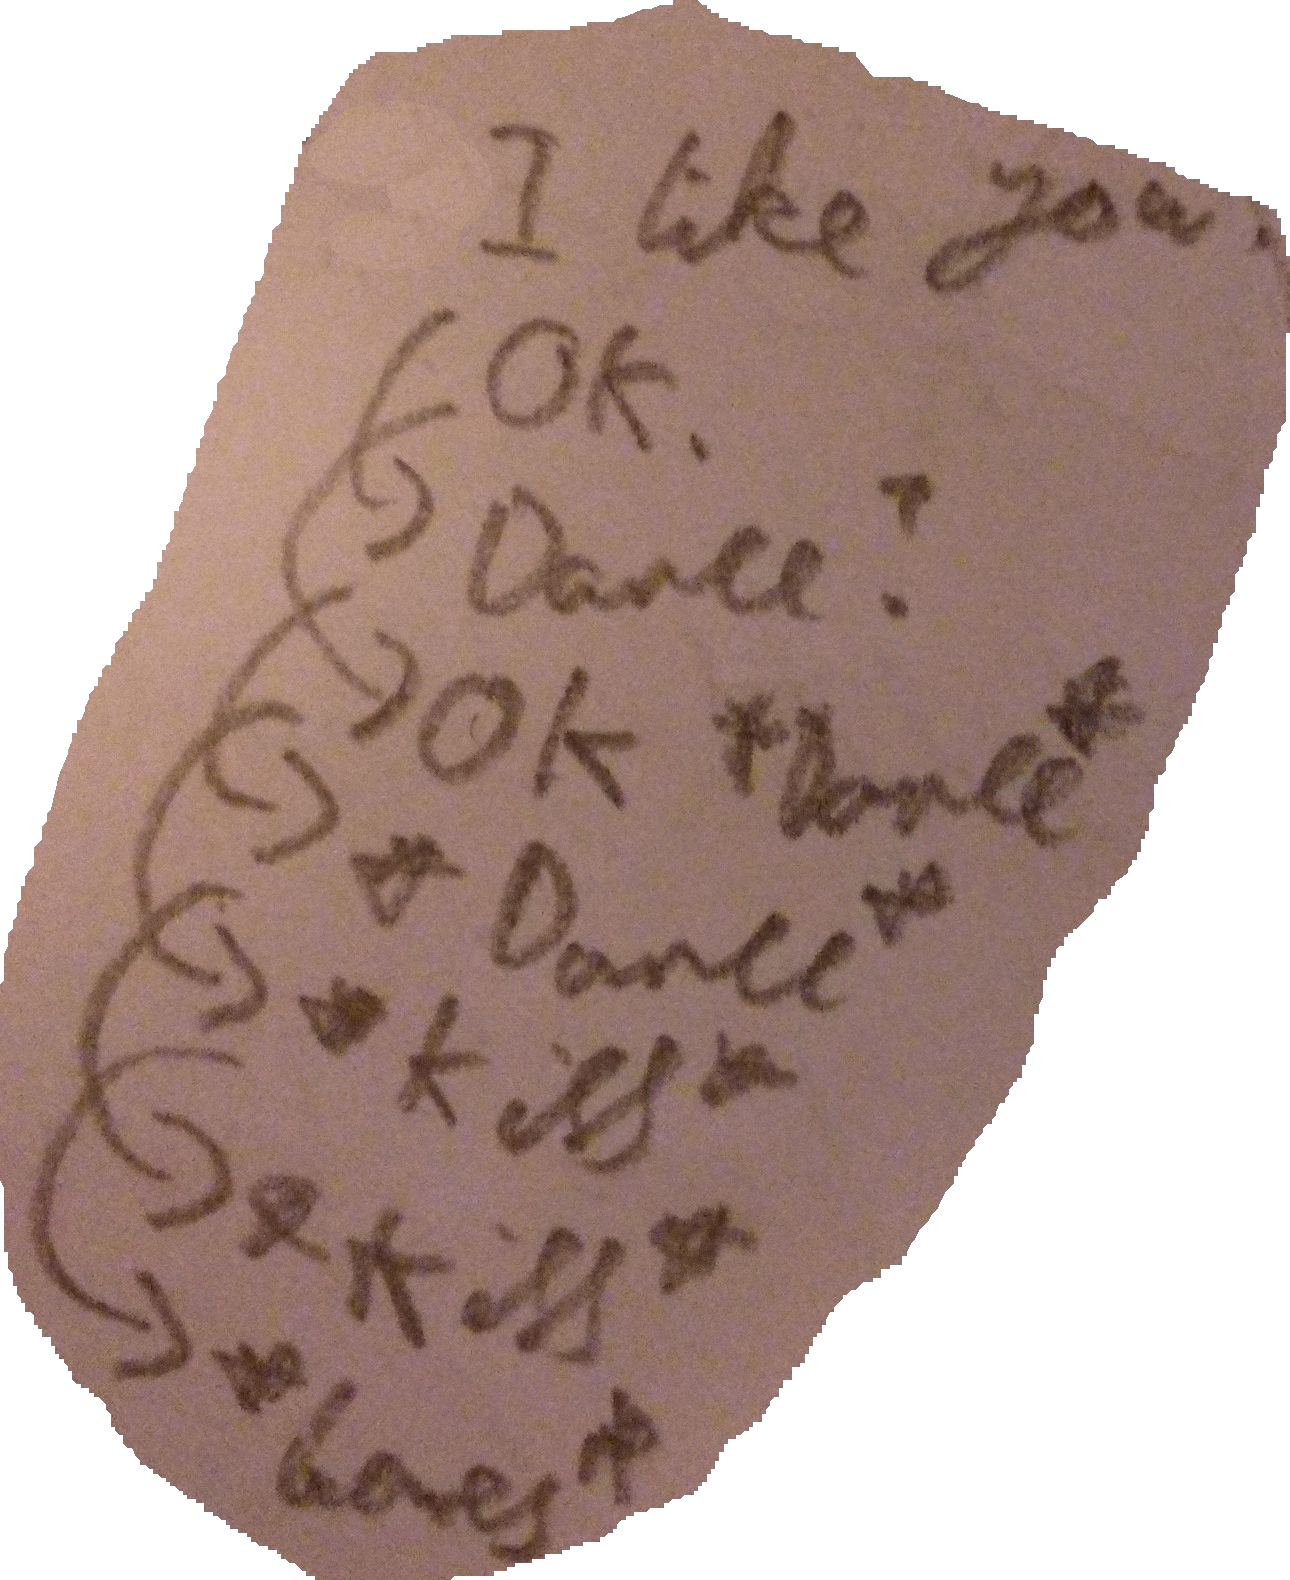 I like you.
OK.
Dance?
OK *Dance*
*Dance*
*Kiss*
*Kiss*
*Loves*